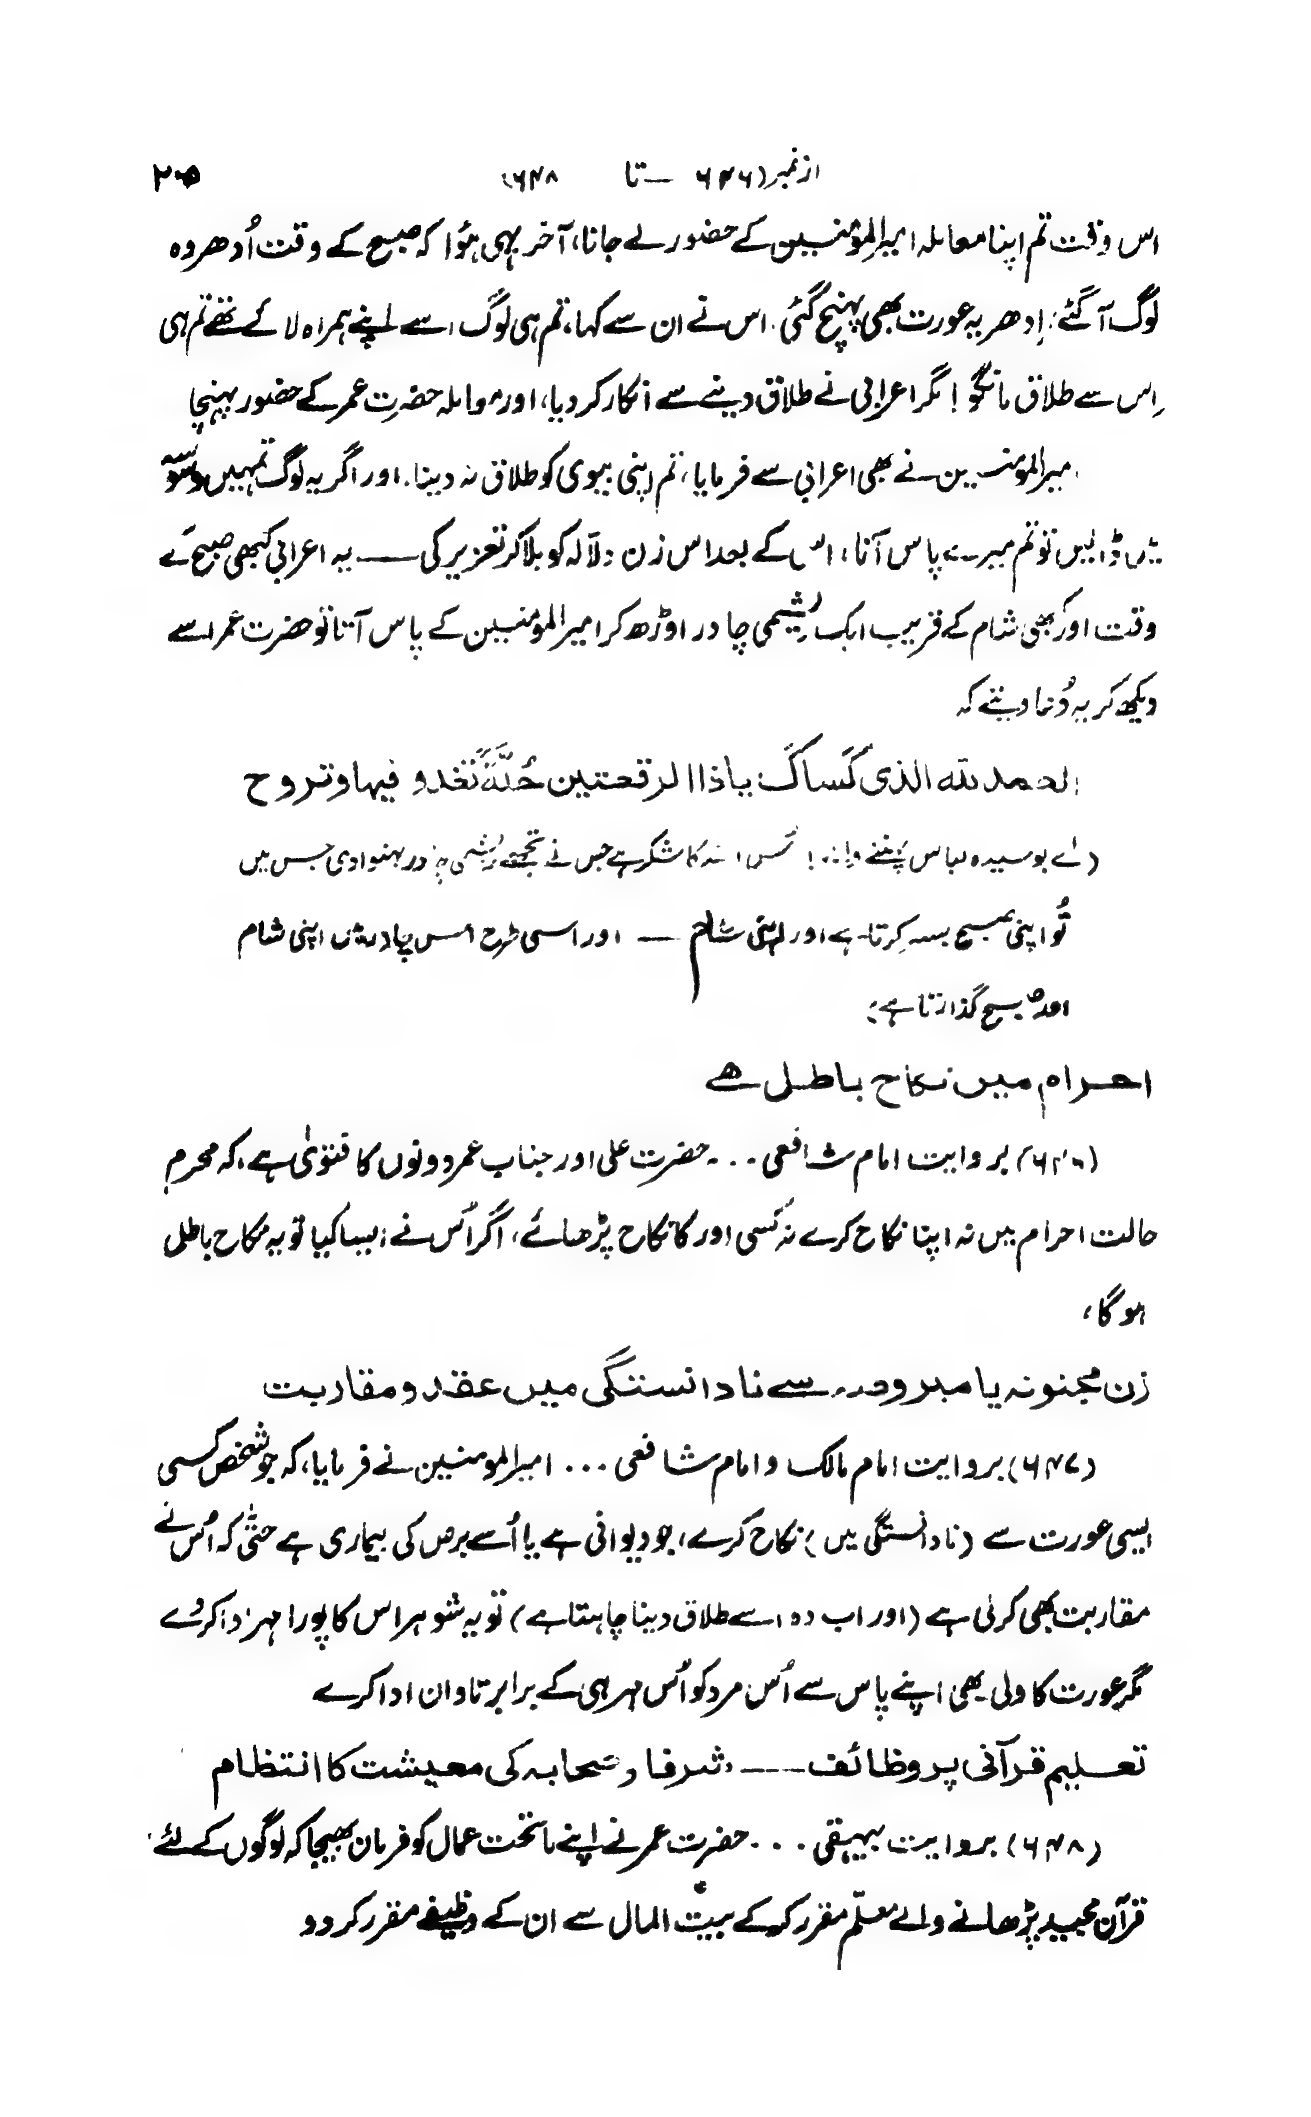 از نمبر (۶۴۶ — تا ۶۴۸) ۲۰۵
اس وقت تم اپنا معاملہ امیرالمؤمنین کے حضور لے جانا، آخر یہی ہؤا کہ صبح کے وقت اُدھر وہ
لوگ آ گئے؛ اِدھر یہ عورت بھی پہنچ گئی. اس نے ان سے کہا، تم ہی لوگ اسے اپنے ہمراہ لائے تھے تم ہی
اِس سے طلاق مانگو! مگر اعرابی نے طلاق دینے سے انکار کر دیا، اور معاملہ حضرت عمر کے حضور پہنچا
امیرالمؤمنین نے بھی اعرابی سے فرمایا، تم اپنی بیوی کو طلاق نہ دینا. اور اگر یہ لوگ تمہیں وسوسہ
میں ڈالیں تو تم میرے پاس آنا، اس کے بعد اس زن دلّالہ کو بلا کر تعزیر کی — یہ اعرابی کبھی صبح کے
وقت اور کبھی شام کے قریب ایک ریشمی چادر اوڑھ کر امیرالمومنین کے پاس آتا تو حضرت عمر اسے
دیکھ کر یہ دُعا دیتے کہ
الحمد للہ الذی کَسَاکَ یا ذا الرقعتین حُلَّةً تَغدو فیہا و تروح
(اے بوسیدہ لباس پہننے والے! اس اللہ کا شکر ہے جس نے تجھے ریشمی چادر پہنوا دی جس میں
تُو اپنی صبح بسر کرتا ہے اور اپنی شام — اور اسی طرح اس چادر میں اپنی شام
اور صبح گذارتا ہے)
احرام میں نکاح باطل ہے
(۶۴۶) بروایت امام شافعی ... حضرت علی اور جناب عمر دونوں کا فتوٰی ہے، کہ محرم
حالت احرام میں نہ اپنا نکاح کرے نہ کسی اور کا نکاح پڑھائے، اگر اُس نے ایسا کیا تو یہ نکاح باطل
ہو گا،
زن مجنونہ یا مبروصہ سے نادانستگی میں عقد و مقاربت
(۶۴۷) بروایت امام مالک و امام شافعی ... امیرالمومنین نے فرمایا، کہ جو شخص کسی
ایسی عورت سے (نادانستگی میں) نکاح کرے، جو دیوانی ہے یا اُسے برص کی بیماری ہے حتّٰی کہ اُس نے
مقاربت بھی کر لی ہے (اور اب وہ اسے طلاق دینا چاہتا ہے) تو یہ شوہر اس کا پورا مہر ادا کر دے
مگر عورت کا ولی بھی اپنے پاس سے اُس مرد کو اُس مہر ہی کے برابر تاوان ادا کرے
تعلیم قرآنی پر وظائف --- شرفاء صحابہ کی معیشت کا انتظام
(۶۴۸) بروایت بیہقی ... حضرت عمر نے اپنے ماتحت عمال کو فرمان بھیجا کہ لوگوں کے لئے
قرآن مجید پڑھانے والے معلّم مقرر کر کے بیت المال سے ان کے وظیفے مقرر کر دو